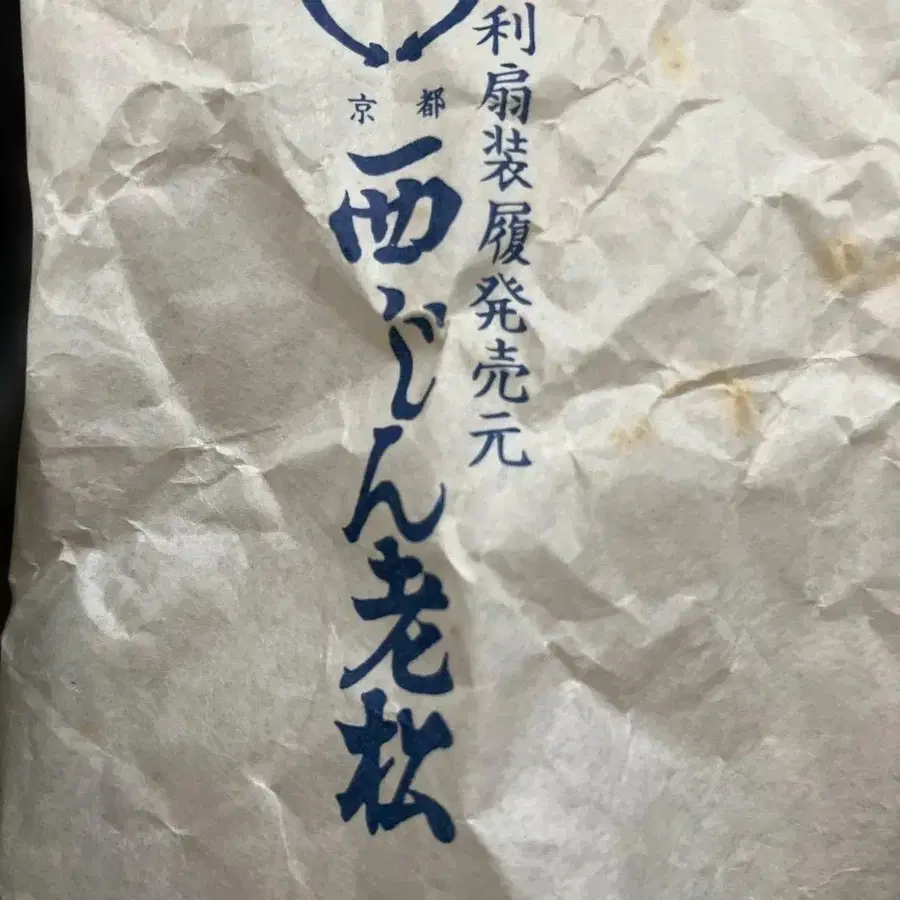 利扇装履発売元
京都
西じん老松